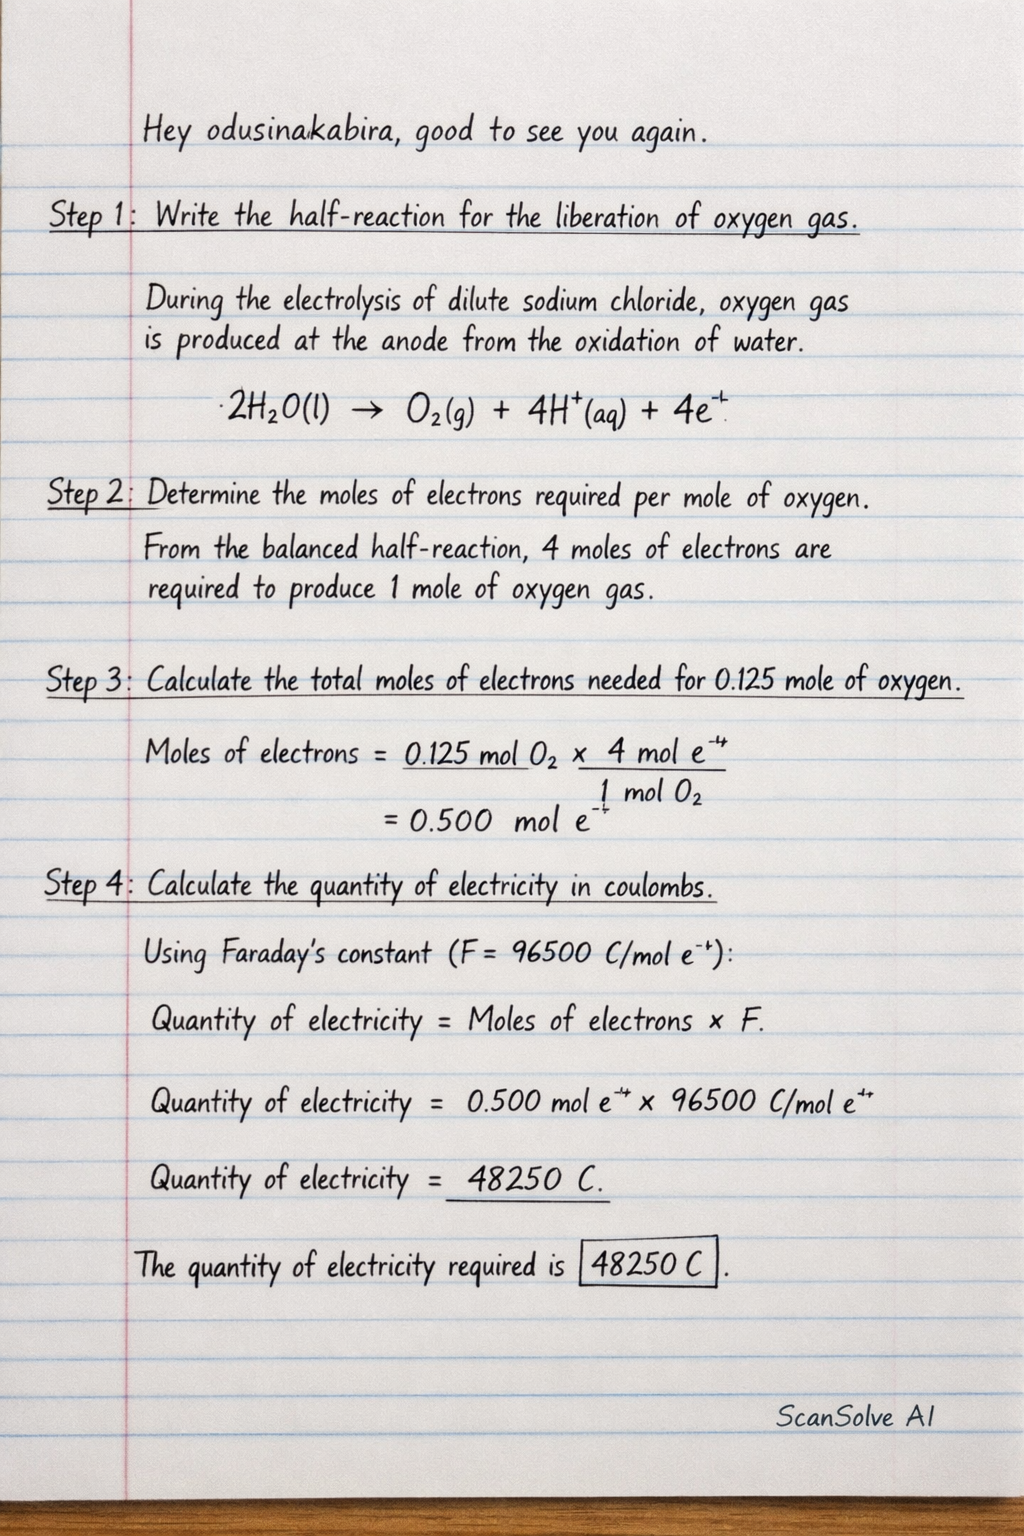 Hey odusinakabira, good to see you again.
Step 1: Write the half-reaction for the liberation of oxygen gas.
During the electrolysis of dilute sodium chloride, oxygen gas
is produced at the anode from the oxidation of water.
2H₂O(l) → O₂(g) + 4H⁺(aq) + 4e⁻⁺
Step 2: Determine the moles of electrons required per mole of oxygen.
From the balanced half-reaction, 4 moles of electrons are
required to produce 1 mole of oxygen gas.
Step 3: Calculate the total moles of electrons needed for 0.125 mole of oxygen.
Moles of electrons = 0.125 mol O₂ × 4 mol e⁻⁺
1 mol O₂
= 0.500 mol e⁻⁺
Step 4: Calculate the quantity of electricity in coulombs.
Using Faraday's constant (F = 96500 C/mol e⁻⁺):
Quantity of electricity = Moles of electrons × F.
Quantity of electricity = 0.500 mol e⁻⁺ × 96500 C/mol e⁻⁺
Quantity of electricity = 48250 C.
The quantity of electricity required is 48250 C.
ScanSolve AI